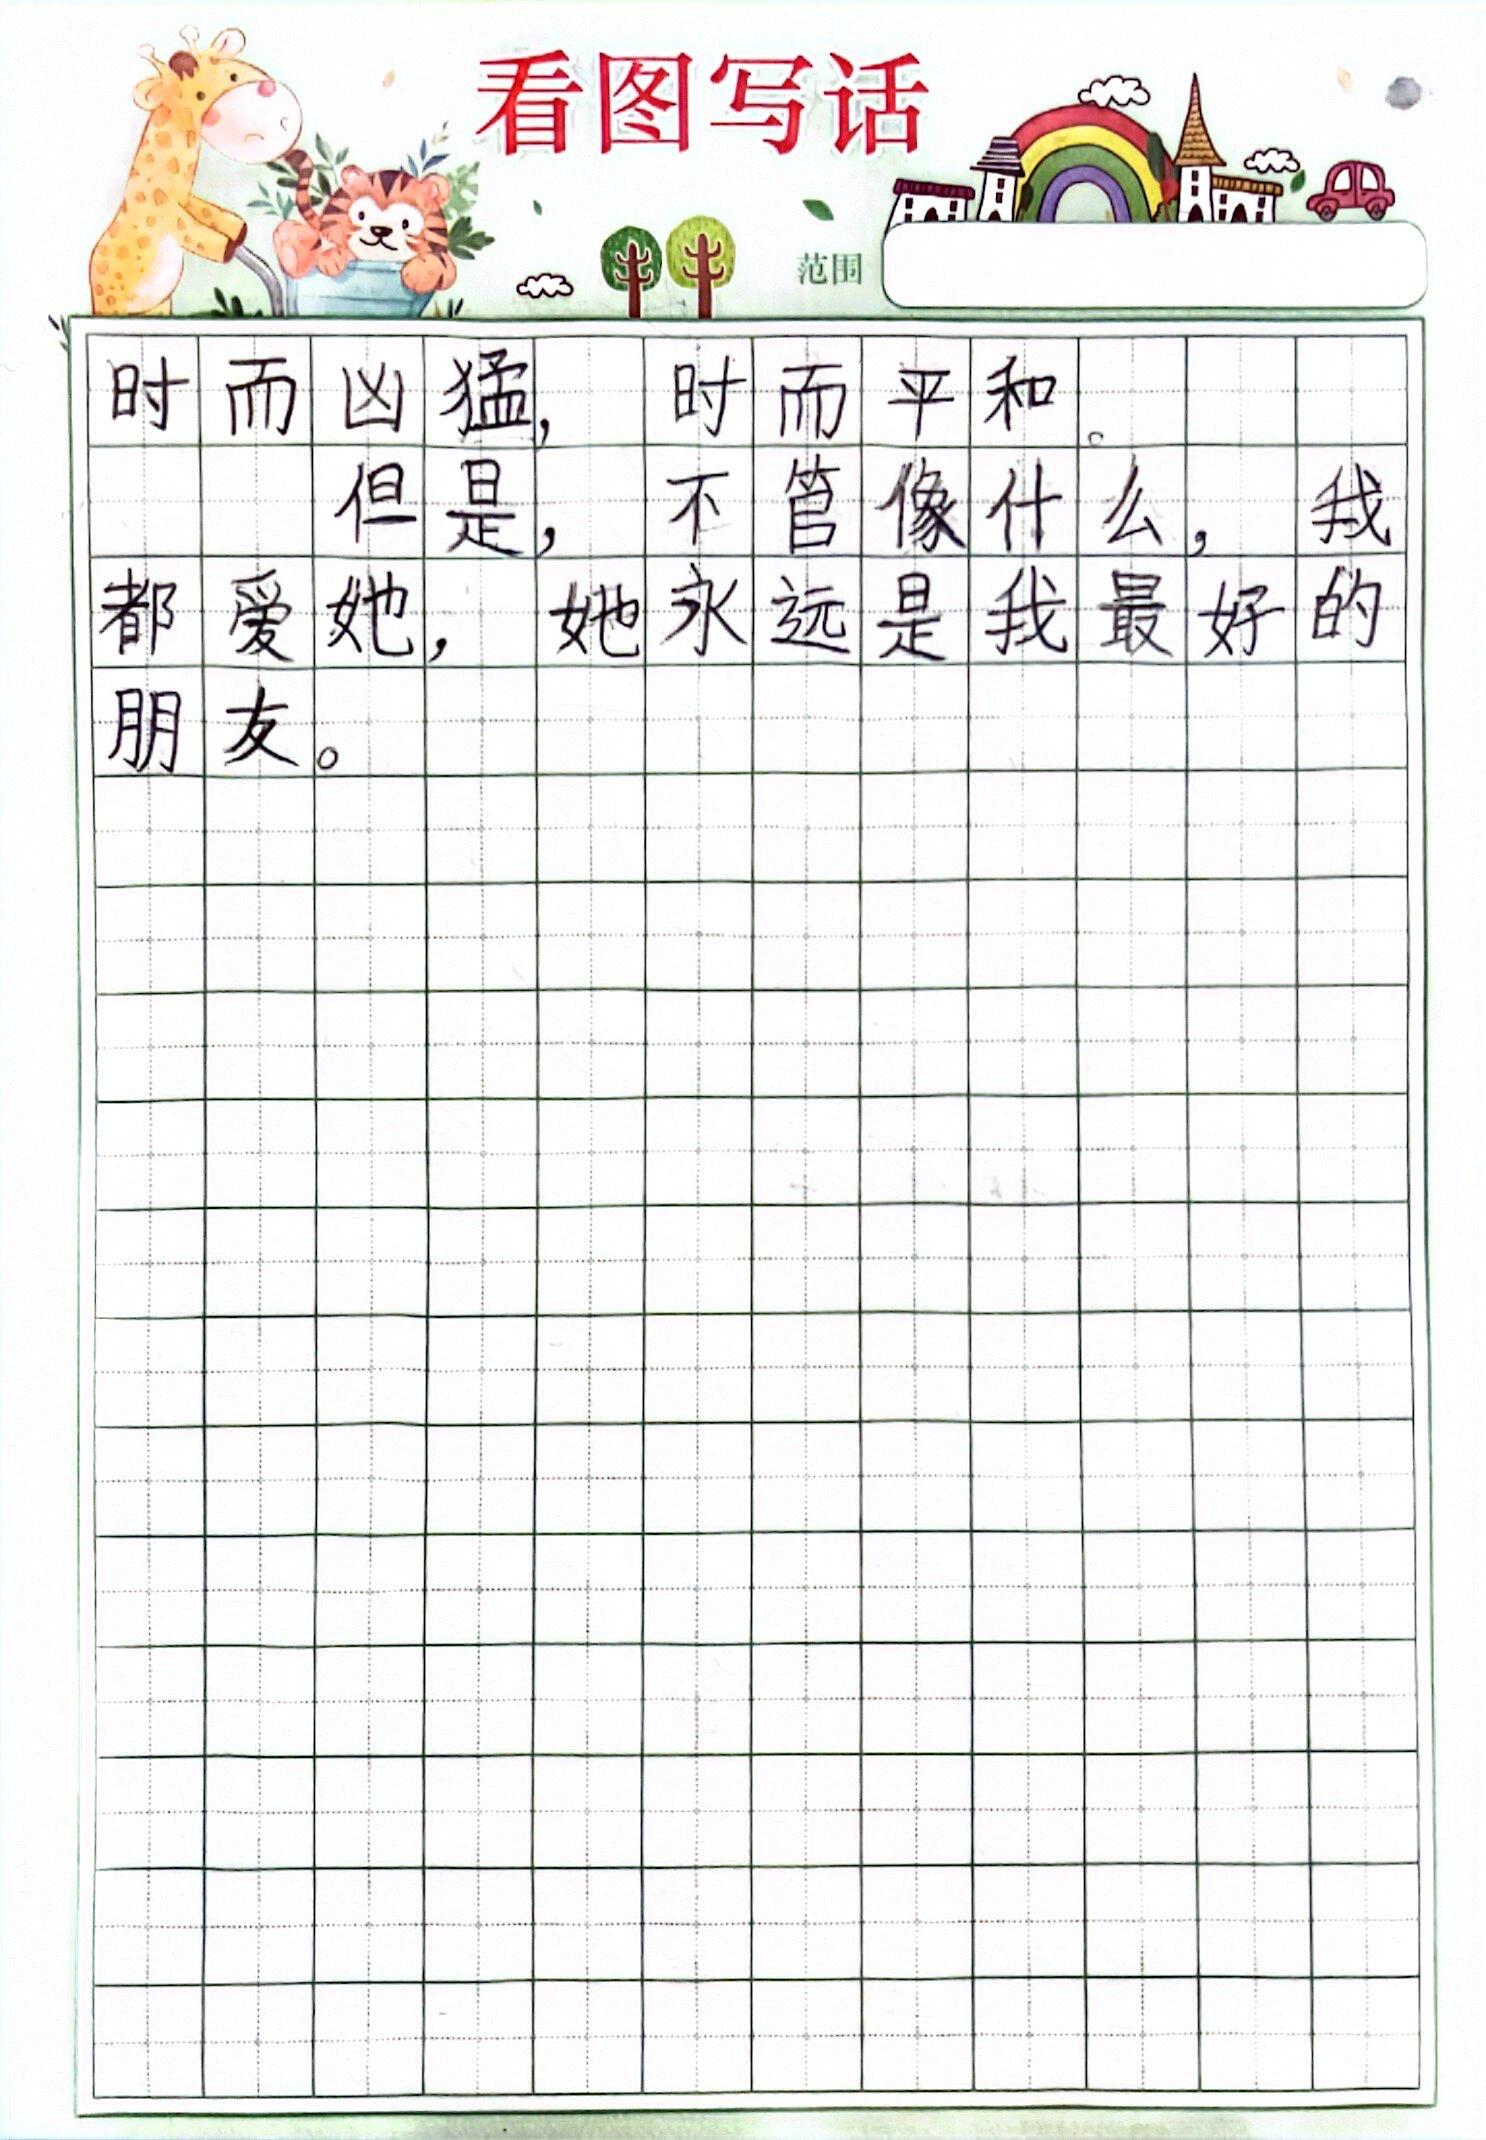 看图写话
范围
时而凶猛，时而平和。
但是，不管像什么，我
都爱她，她永远是我最好的
朋友。